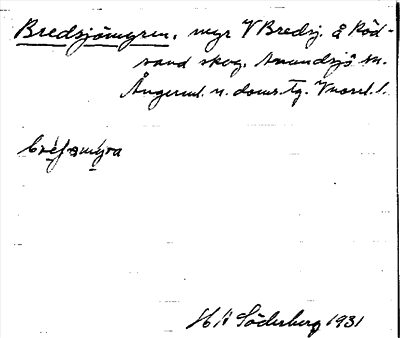 Bredsjömyren, myr V Bredsj. å Röd-
sand skog, Anundsjö sn.
Ångerml. n. doms. tg. Vnorrl. l.
H Söderberg 1931